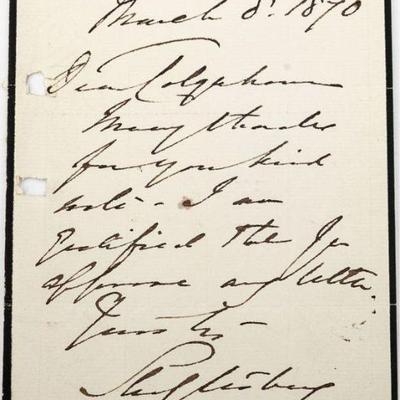 March 8. 1870
Dear Colquhoun
Many thanks
for your kind
note - I am
gratified that you
approve my letter.
Yours tr
Shaftesbury